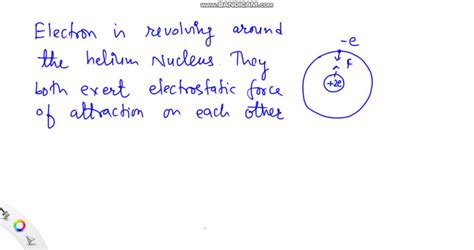 www.BANDICAM.com
Electron is revolving around
the helium Nucleus. They
both exert electrostatic force
of attraction on each other
-e
F
+2e